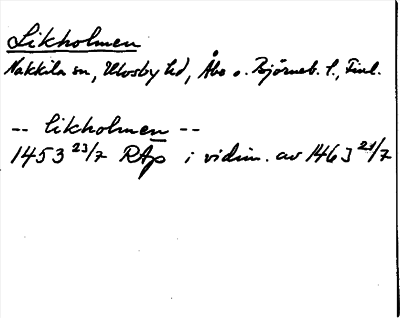 Likholmen
Nakkila sn, Ulvsby hd, Åbo o. Björneb. l., Finl.
-- likholmen --
1453 23/7 RAp i vidim. av 1463 21/7